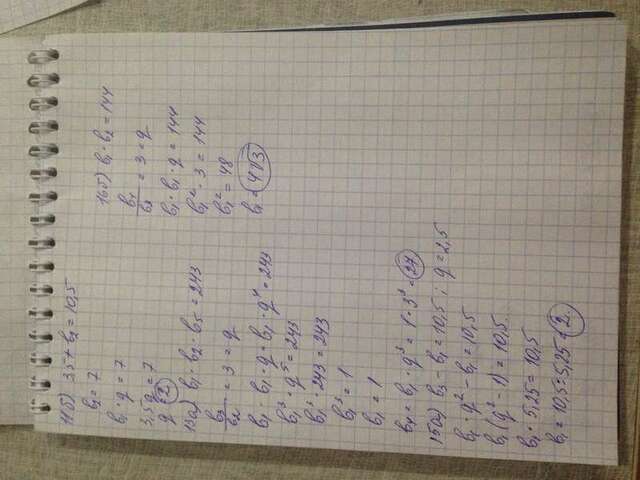 11б) 3,5 + b₂ = 10,5
b₂ = 7
b₁ · q = 7
3,5q = 7
q = 2
13а) b₁ · b₂ · b₅ = 243
b₃/b₂ = 3 = q
b₁ · b₁ · q · b₁ · q⁴ = 243
b₁³ · q⁵ = 243
b₁³ · 243 = 243
b₁³ = 1
b₁ = 1
b₄ = b₁ · q³ = 1 · 3³ = 27
15а) b₃ - b₁ = 10,5 ; q = 2,5
b₁ · q² - b₁ = 10,5
b₁(q² - 1) = 10,5
b₁ · 5,25 = 10,5
b₁ = 10,5 : 5,25 = 2.
16б) b₁ · b₂ = 144
b₁/b₂ = 3 = q
b₁ · b₁ · q = 144
b₁² · 3 = 144
b₁² = 48
b₁ = 4√3